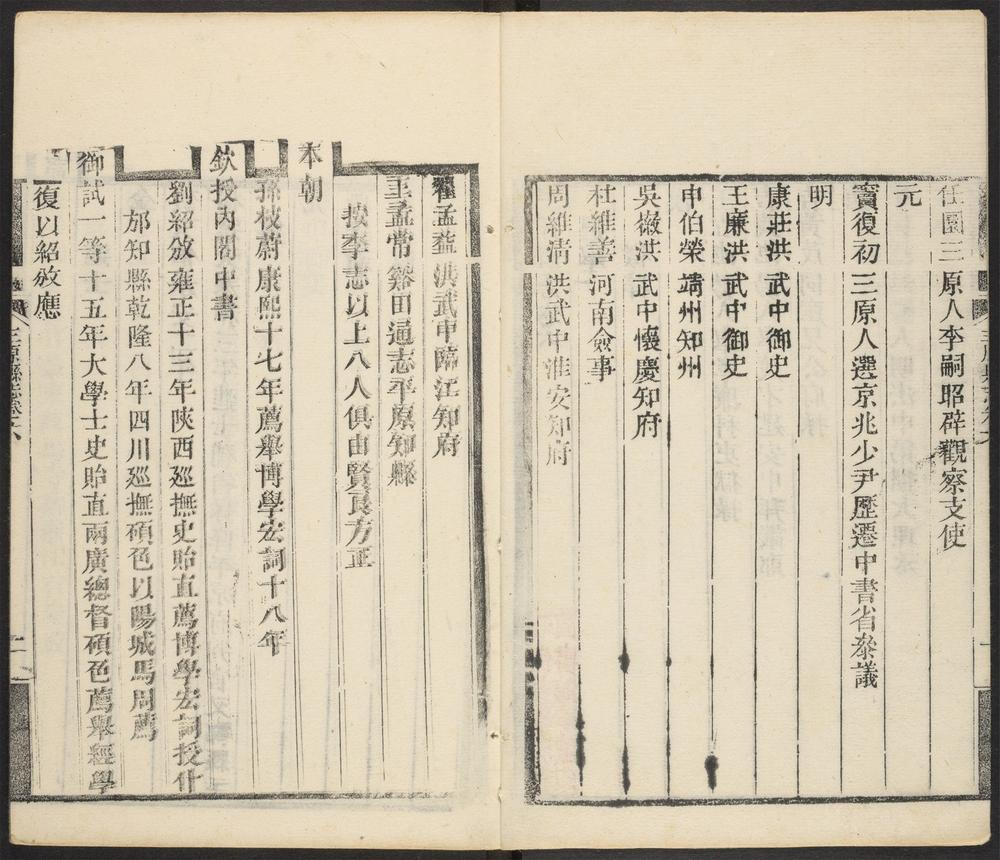 任圜三原人李嗣昭辟觀察支使
元
竇復初三原人選京兆少尹歷遷中書省叅議
明
康莊洪武中御史
王廉洪武中御史
申伯榮靖州知州
吳徽洪武中懷慶知府
杜維善河南僉事
周維清洪武中淮安知府
翟孟益洪武中臨江知府
王孟常籍田通志平原知縣
按李志以上八人俱由賢良方正
本朝
孫枝蔚康熙十七年薦舉博學宏詞十八年
欽授內閣中書
劉紹攽雍正十三年陝西廵撫史貽直薦博學宏詞授什
邡知縣乾隆八年四川廵撫碩色以陽城馬周薦
御試一等十五年大學士史貽直兩廣總督碩色薦舉經學
復以紹攽應
三原縣志卷八